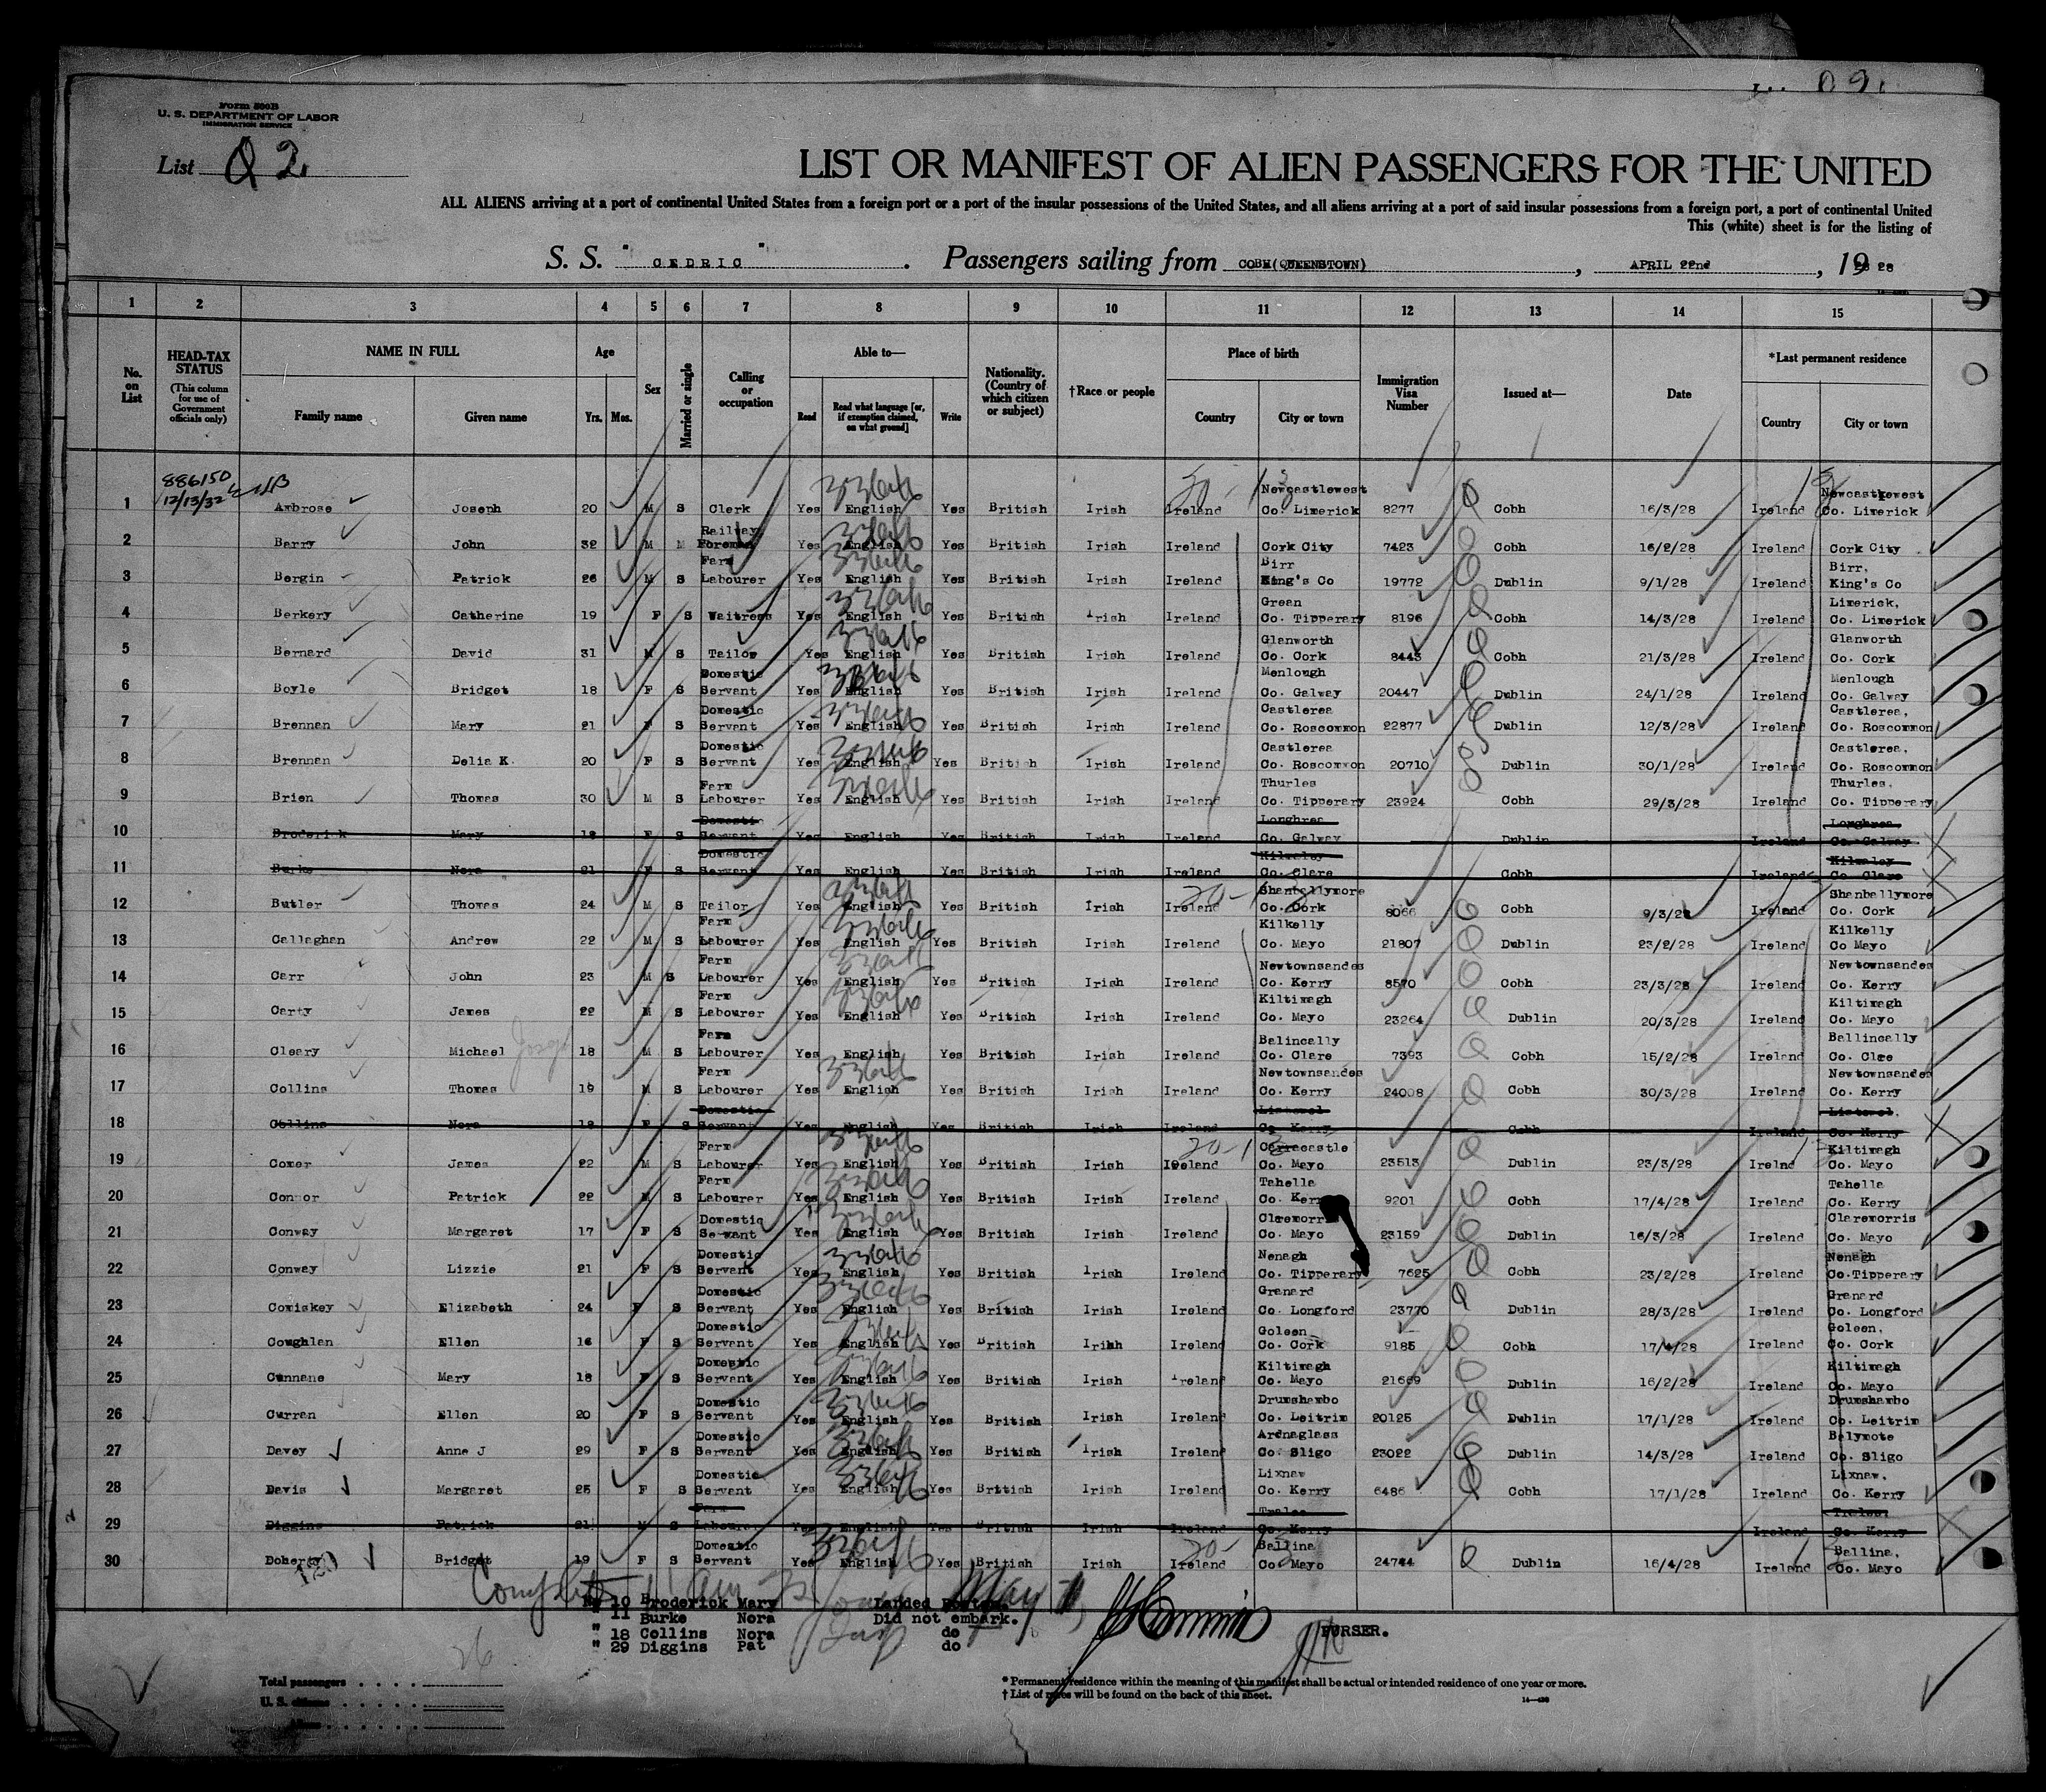 Form 500B
U. S. DEPARTMENT OF LABOR
IMMIGRATION SERVICE
List Q 2
LIST OR MANIFEST OF ALIEN PASSENGERS FOR THE UNITED
ALL ALIENS arriving at a port of continental United States from a foreign port or a port of the insular possessions of the United States, and all aliens arriving at a port of said insular possessions from a foreign port, a port of continental United
This (white) sheet is for the listing of
S. S. " CEDRIC " . Passengers sailing from COBH(QUEENSTOWN) , APRIL 22nd , 19 28
1 2 3 4 5 6 7 8 9 10 11 12 13 14 15
No. on List HEAD-TAX STATUS (This column for use of Government officials only) NAME IN FULL Family name Given name Age Yrs. Mos. Sex Married or single Calling or occupation Able to— Read Read what language [or, if exemption claimed, on what ground] Write Nationality. (Country of which citizen or subject) †Race or people Place of birth Country City or town Immigration Visa Number Issued at— Date *Last permanent residence Country City or town
886150
12/13/32
1 Ambrose Joseph 20 M S Clerk Yes English Yes British Irish Ireland Newcastlewest Co. Limerick 8277 Cobh 16/3/28 Ireland Newcastlewest Co. Limerick
2 Barry John 32 M M Railway Foreman Yes English Yes British Irish Ireland Cork City 7423 Cobh 16/2/28 Ireland Cork City
3 Bergin Patrick 26 M S Farm Labourer Yes English Yes British Irish Ireland Birr King's Co 19772 Dublin 9/1/28 Ireland Birr, King's Co
4 Berkery Catherine 19 F S Waitress Yes English Yes British Irish Ireland Green Co. Tipperary 8196 Cobh 14/3/28 Ireland Limerick, Co. Limerick
5 Bernard David 31 M S Tailor Yes English Yes British Irish Ireland Glanworth Co. Cork 8443 Cobh 21/3/28 Ireland Glanworth Co. Cork
6 Boyle Bridget 18 F S Domestic Servant Yes English Yes British Irish Ireland Menlough Co. Galway 20447 Dublin 24/1/28 Ireland Menlough Co. Galway
7 Brennan Mary 21 F S Domestic Servant Yes English Yes British Irish Ireland Castlerea Co. Roscommon 22877 Dublin 12/3/28 Ireland Castlerea, Co. Roscommon
8 Brennan Delia K. 20 F S Domestic Servant Yes English Yes British Irish Ireland Castlerea Co. Roscommon 20710 Dublin 30/1/28 Ireland Castlerea, Co. Roscommon
9 Brien Thomas 30 M S Farm Labourer Yes English Yes British Irish Ireland Thurles Co. Tipperary 23924 Cobh 29/3/28 Ireland Thurles, Co. Tipperary
10 Broderick Mary 18 F S Domestic Servant Yes English Yes British Irish Ireland Loughrea Co. Galway Dublin Ireland Loughrea Co. Galway
11 Burke Nora 21 F S Domestic Servant Yes English Yes British Irish Ireland Kilmaley Co. Clare Cobh Ireland Kilmaley Co. Clare
12 Butler Thomas 24 M S Tailor Yes English Yes British Irish Ireland Shanballymore Co. Cork 8066 Cobh 9/3/28 Ireland Shanballymore Co. Cork
13 Callaghan Andrew 22 M S Farm Labourer Yes English Yes British Irish Ireland Kilkelly Co. Mayo 21807 Dublin 23/2/28 Ireland Kilkelly Co Mayo
14 Carr John 23 M S Farm Labourer Yes English Yes British Irish Ireland Newtownsandes Co. Kerry 8570 Cobh 23/3/28 Ireland Newtownsandes Co. Kerry
15 Carty James 22 M S Farm Labourer Yes English Yes British Irish Ireland Kiltimagh Co. Mayo 23264 Dublin 20/3/28 Ireland Kiltimagh Co. Mayo
16 Cleary Michael Joseph 18 M S Farm Labourer Yes English Yes British Irish Ireland Balincally Co. Clare 7393 Cobh 15/2/28 Ireland Ballincally Co. Clae
17 Collins Thomas 19 M S Farm Labourer Yes English Yes British Irish Ireland Newtownsandes Co. Kerry 24008 Cobh 30/3/28 Ireland Newtownsandes Co. Kerry
18 Collins Nora 18 F S Domestic Servant Yes English Yes British Irish Ireland Listowel Co. Kerry Cobh Ireland Listowel, Co. Kerry
19 Comer James 22 M S Farm Labourer Yes English Yes British Irish Ireland Carracastle Co. Mayo 23513 Dublin 23/3/28 Irelnd Kiltimagh Co. Mayo
20 Connor Patrick 22 M S Farm Labourer Yes English Yes British Irish Ireland Tahella Co. Kerry 9201 Cobh 17/4/28 Ireland Tahella Co. Kerry
21 Conway Margaret 17 F S Domestic Servant Yes English Yes British Irish Ireland Claremorris Co. Mayo 23159 Dublin 16/3/28 Ireland Claremorris Co. Mayo
22 Conway Lizzie 21 F S Domestic Servant Yes English Yes British Irish Ireland Nenagh Co. Tipperary 7625 Cobh 23/2/28 Ireland Nenagh Co.Tipperary
23 Comiskey Elizabeth 24 F S Domestic Servant Yes English Yes British Irish Ireland Granard Co. Longford 23770 Dublin 28/3/28 Ireland Granard Co. Longford
24 Coughlan Ellen 16 F S Domestic Servant Yes English Yes British Irish Ireland Goleen, Co. Cork 9185 Cobh 17/4/28 Ireland Goleen, Co. Cork
25 Cunnane Mary 18 F S Domestic Servant Yes English Yes British Irish Ireland Kiltimagh Co. Mayo 21669 Dublin 16/2/28 Ireland Kiltimagh Co. Mayo
26 Curran Ellen 20 F S Domestic Servant Yes English Yes British Irish Ireland Drumshambo Co. Leitrim 20125 Dublin 17/1/28 Ireland Drumshambo Co. Leitrim
27 Davey Anne J 29 F S Domestic Servant Yes English Yes British Irish Ireland Ardnaglass Co. Sligo 23022 Dublin 14/3/28 Ireland Balymote Co. Sligo
28 Davis Margaret 25 F S Domestic Servant Yes English Yes British Irish Ireland Lixnaw Co. Kerry 6486 Cobh 17/1/28 Ireland Lixnaw, Co. Kerry
29 Diggins Patrick 21 M S Farm Labourer Yes English Yes British Irish Ireland Tralee Co. Kerry Ireland Tralee Co. Kerry
30 Doherty Bridget 19 F S Domestic Servant Yes English Yes British Irish Ireland Ballina Co. Mayo 24744 Dublin 16/4/28 Ireland Ballina, Co. Mayo
120
No 10 Broderick Mary Landed
" 11 Burke Nora Did not embark.
" 18 Collins Nora do
" 29 Diggins Pat do
PURSER.
Total passengers . . . . 26
U. S. citizens . . . . .
Aliens . . . . . .
* Permanent residence within the meaning of this manifest shall be actual or intended residence of one year or more.
† List of races will be found on the back of this sheet.